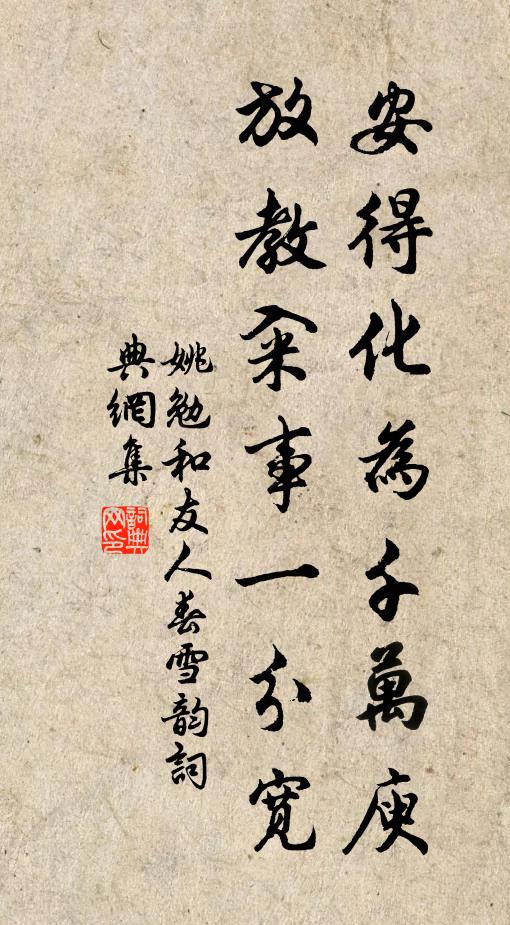 安得化為千萬庾
放教籴事一分寬
姚勉和友人春雪韵詞
典網集
詞典网印